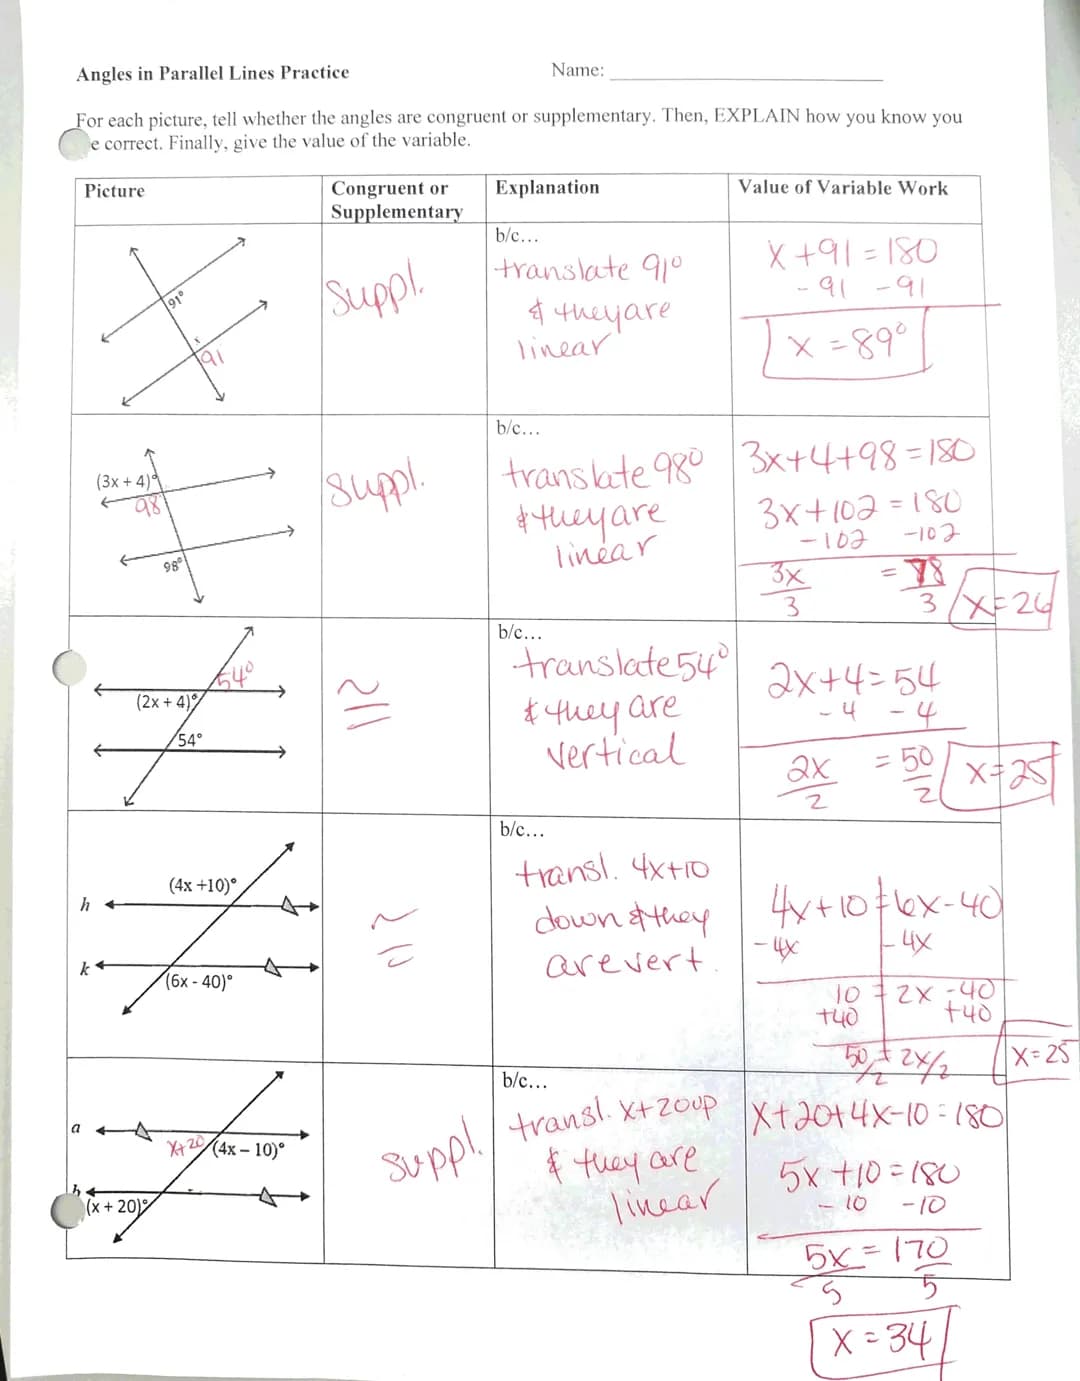 Angles in Parallel Lines Practice
Name:
For each picture, tell whether the angles are congruent or supplementary. Then, EXPLAIN how you know you
e correct. Finally, give the value of the variable.
Picture
Congruent or
Supplementary
Explanation
Value of Variable Work
91°
x
91
Suppl.
b/c...
translate 91°
& they are
linear
x + 91 = 180
- 91 - 91
x = 89°
(3x + 4)°
98
98°
Suppl.
b/c...
translate 98°
& they are
linear
3x+4+98=180
3x+102 = 180
-102 -102
3x = 78
3 3
x=26
54°
(2x + 4)°
54°
≅
b/c...
translate 54°
& they are
vertical
2x+4=54
- 4 - 4
2x = 50
2 2
x=25
(4x +10)°
h
k
(6x - 40)°
≅
b/c...
transl. 4x+10
down & they
are vert.
4x+10=6x-40
-4x -4x
10 = 2x -40
+40 +40
50/2 = 2x/2
x=25
a
x+20
(4x – 10)°
b
(x + 20)°
suppl.
b/c...
transl. x+20 up
& they are
linear
x+20+4x-10=180
5x +10 = 180
- 10 -10
5x = 170
5 5
x = 34